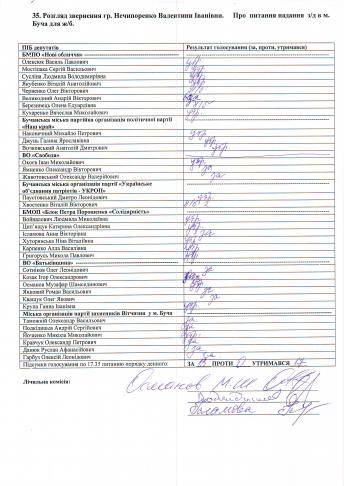 35. Розгляд звернення гр. Нечипоренко Валентини Іванівни. Про питання надання з/д в м.
Буча для ж/б.
ПІБ депутата Результат голосування (за, проти, утримався)
БМПО «Нові обличчя»
Олексюк Василь Павлович утр.
Мостіпака Сергій Васильович
Суслік Людмила Володимирівна утр.
Якубенко Віталій Анатолійович
Черненко Олег Вікторович
Великодний Андрій Вікторович
Березинець Олена Едуардівна утр.
Кухаренко Вячеслав Миколайович утр.
Бучанська міська партійна організація політичної партії
«Наш край»
Наконечний Михайло Петрович утр.
Джунь Галина Ярославівна утр.
Вознесенський Анатолій Дмитрович за
ВО «Свобода»
Окоєв Іван Миколайович утр.
Яниенко Олександр Вікторович за
Животовський Олександр Валерійович
Бучанська міська організація партії «Українське
об'єднання патріотів - УКРОП»
Паустовський Дмитро Леонідович
Хвостенко Віталій Вікторович утр.
БМОП «Блок Петра Порошенка «Солідарність»
Войналович Людмила Миколаївна утр.
Цип'ящук Катерина Олександрівна
Ісламова Анна Вікторівна за
Хуторянська Ніна Віталіївна
Карпенко Алла Василівна утр.
Григорусь Микола Павлович
ВО «Батьківщина»
Сотніков Олег Леонідович за
Козак Ігор Олександрович
Османов Музафар Шамсединович за
Яцковий Роман Васильович за
Квашук Олег Якович за
Крупа Ганна Іванівна утр.
Міська організація партії захисників Вітчизни у м. Буча
Танюкій Олександр Васильович за
Подвілішев Андрій Сергійович за
Йотченко Микола Миколайович утр.
Кравчук Олександр Петрович за
Данюк Руслан Афанасійович за
Гарбуз Олексій Леонідович за
Підсумки голосування по 17.35 питанню порядку денного: ЗА ПРОТИ УТРИМАВСЯ 17
Лічильна комісія: Османов М.Ш.
Подвілішев
Ісламова